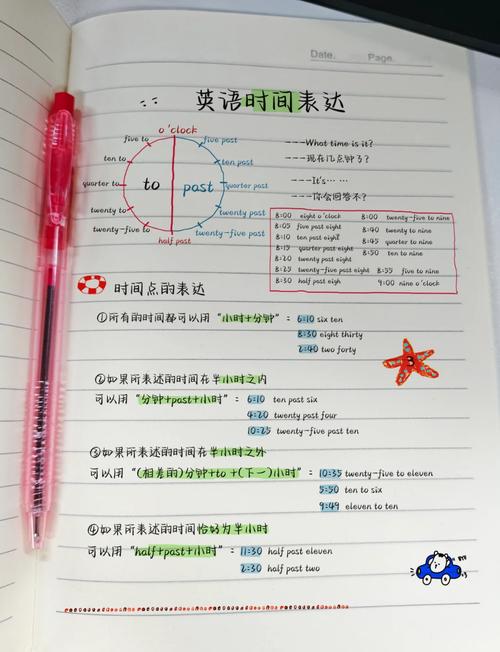 Date. Page.
英语时间表达
o'clock
five to
five past
ten to
ten past
quarter to
to
past
quarter past
twenty to
twenty past
twenty-five to
twenty-five past
half past
----What time is it?
----现在几点钟了?
----It's……
----你会回答不?
8:00 eight o'clock
8:05 five past eight
8:10 ten past eight
8:15 quarter past eight
8:20 twenty past eight
8:25 twenty-five past eight
8:30 half past eigh
8:00 twenty-five to nine
8:40 twenty to nine
8:45 quarter to nine
8:50 ten to nine
8:55 five to nine
9:00 nine o'clock
时间点的表达
①所有的时间都可以用“小时+分钟”= 6:10 six ten
8:30 eight thirty
2:40 two forty
②如果所表述的时间在半小时之内
可以用“分钟+past+小时”= 6:10 ten past six
4:20 twenty past four
10:25 twenty-five past ten
③如果所表述的时间在半小时之外
可以用“(相差的)分钟+to+(下一)小时”= 10:35 twenty-five to eleven
5:50 ten to six
9:49 eleven to ten
④如果所表述的时间恰好为半小时
可以用“half+past+小时”= 11:30 half past eleven
2:30 half past two